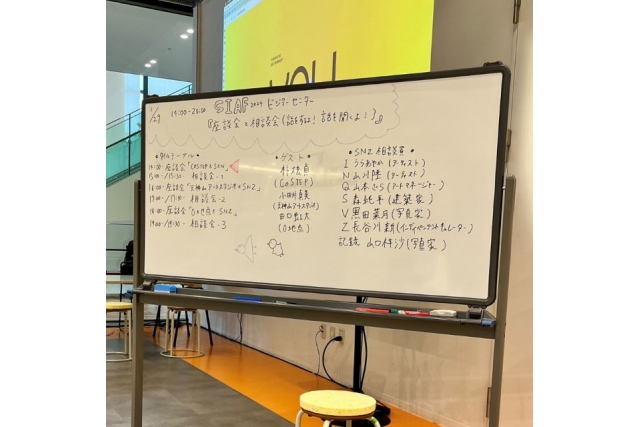 YOU
1/27 14:00-20:00 SIAF2024 ビジターセンター
『座談会と相談会(話をするよ!話を聞くよ!)』
●タイムテーブル●
14:00- 座談会「CoSTEPとSNZ」
15:00-/15:30- 相談会-1
16:00- 座談会「天神山アートスタジオとSNZ」
17:00-/17:30- 相談会-2
18:00- 座談会「0地点とSNZ」
19:00-/19:30- 相談会-3
●ゲスト●
朴 炫貞
(CoSTEP)
小田井真美
(天神山アートスタジオ)
(0地点)
●SNZ相談員●
I うらあやか(アーティスト)
N 山川陸(アーティスト)
Q 山本 (アートマネージャー)
S 森 純平(建築家)
V 黒田菜月(写真家)
Z 長谷川新(インディペンデントキュレーター)
記録 山口梓沙(写真家)